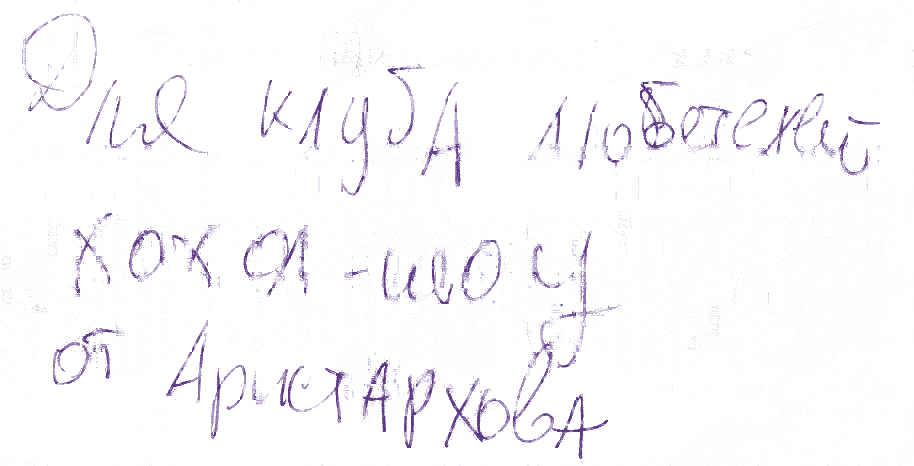 Для клуба любителей
хохол-шоу
от Аристархова